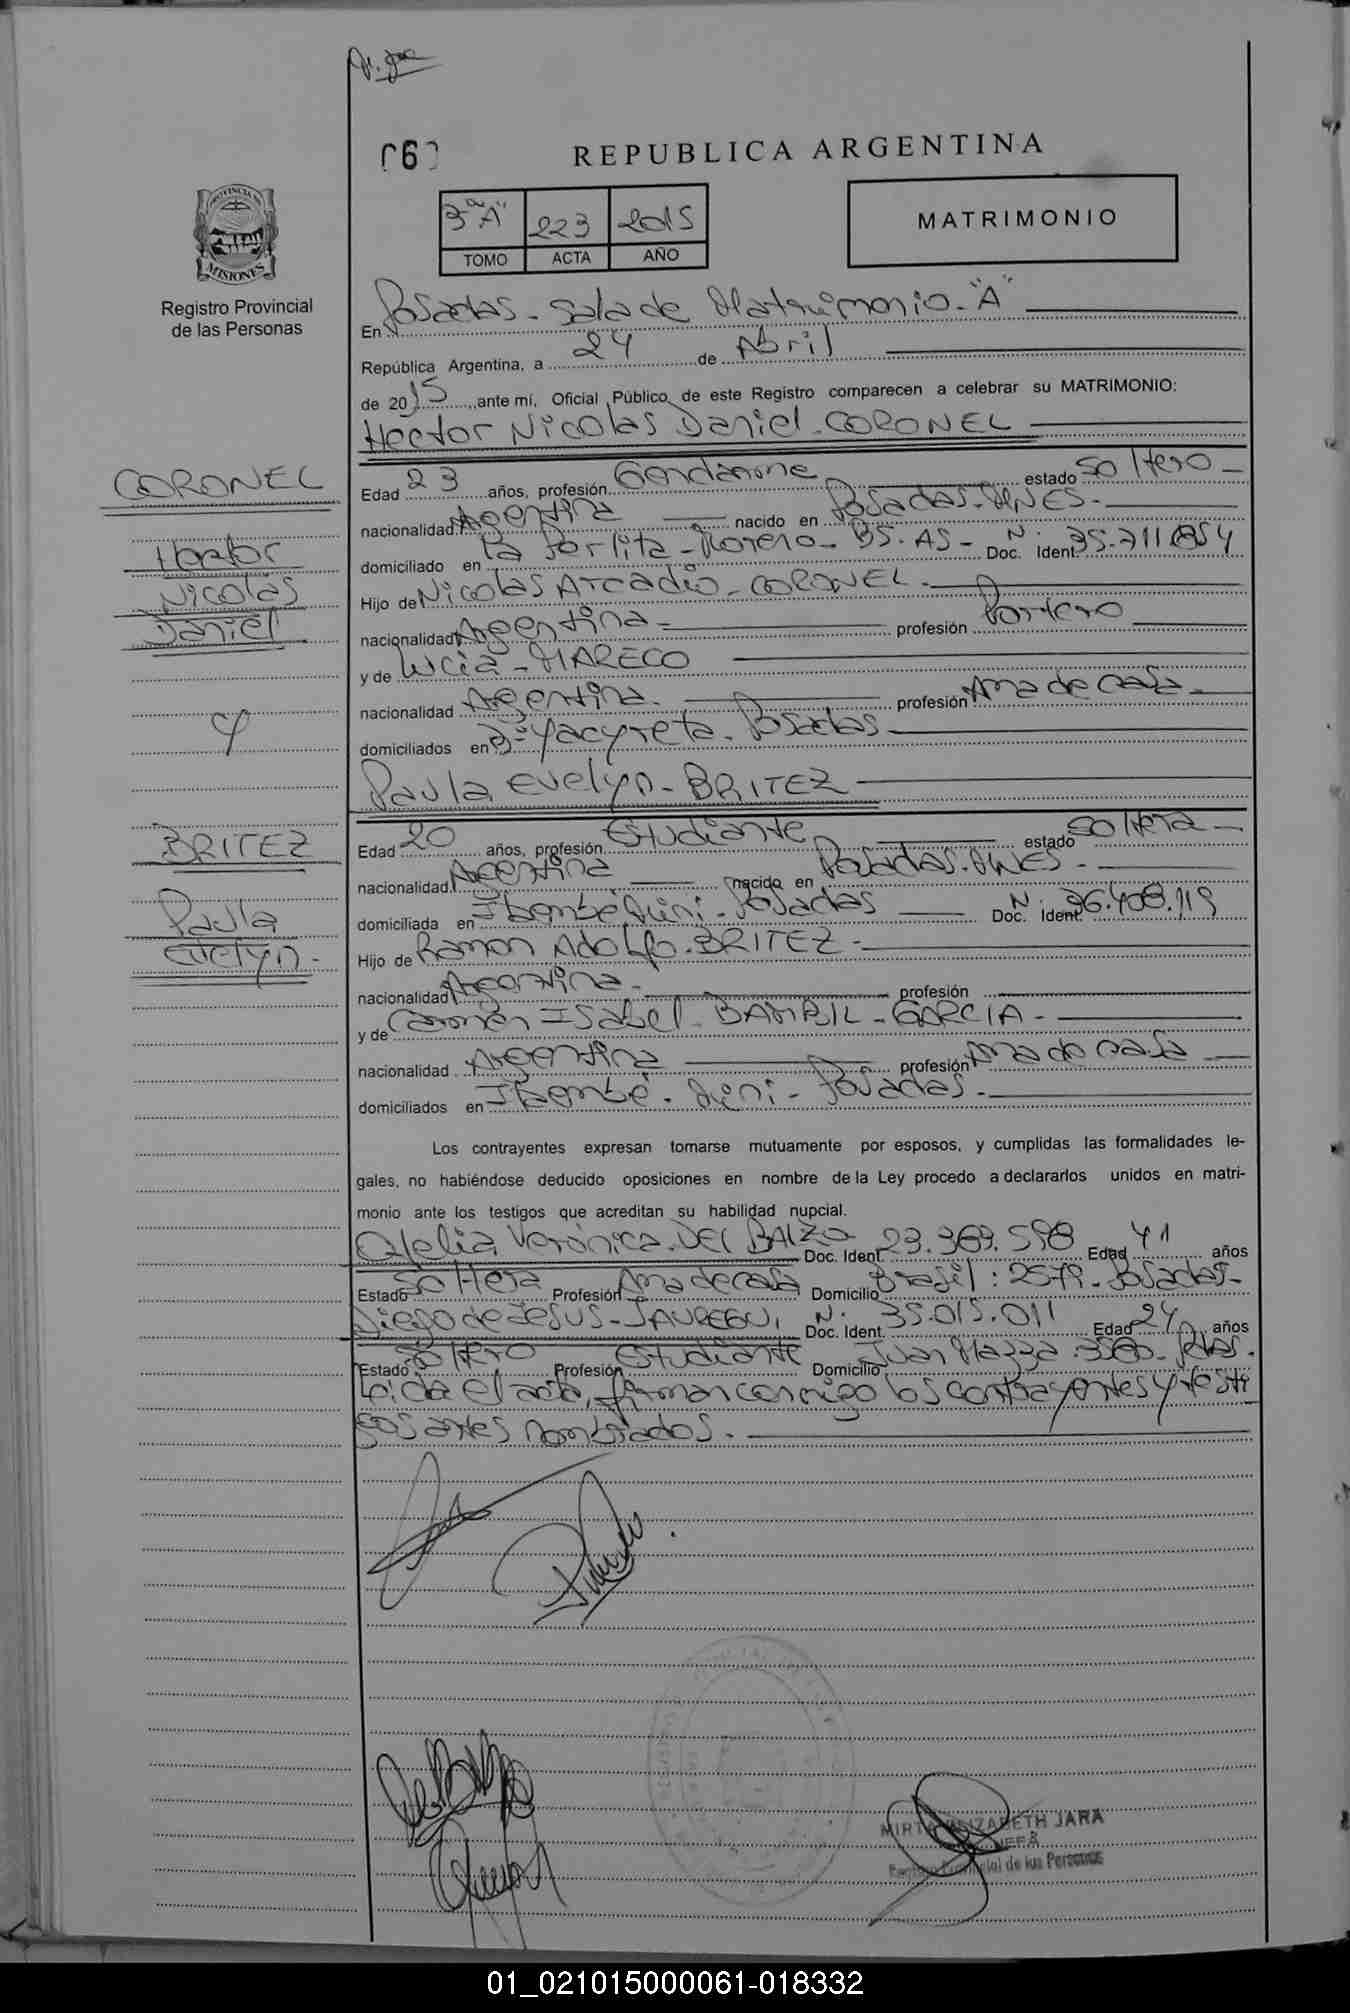 REPUBLICA ARGENTINA
3º "A" 223 2015
TOMO ACTA AÑO
MATRIMONIO
PROVINCIA DE
MISIONES
Registro Provincial
de las Personas
En Posadas - Sala de Matrimonio - "A"
República Argentina, a 24 de Abril
de 2015, ante mí, Oficial Público de este Registro comparecen a celebrar su MATRIMONIO:
Hector Nicolas Daniel - CORONEL
CORONEL
Hector
Nicolás
Daniel
Edad 23 años, profesión Gendarme estado Soltero
nacionalidad Argentina nacido en Posadas - MNES -
domiciliado en La Perlita - Moreno - BS. AS - Doc. Ident. N: 35.711.854
Hijo de Nicolas Arcadio - CORONEL -
nacionalidad Argentina - profesión Portero
y de Lucia - MARECO
nacionalidad Argentina - profesión Ama de casa -
domiciliados en Bº Yacyreta - Posadas
y
Paula Evelyn - BRITEZ
BRITEZ
Paula
Evelyn -
Edad 20 años, profesión Estudiante estado Soltera -
nacionalidad Argentina nacida en Posadas - MNES -
domiciliada en Itaembé Miní - Posadas Doc. Ident. N: 36.408.119
Hijo de Ramon Adolfo - BRITEZ -
nacionalidad Argentina - profesión
y de Carmen Isabel - GARCIA -
nacionalidad Argentina profesión Ama de casa
domiciliados en Itaembé - Miní - Posadas -
Los contrayentes expresan tomarse mutuamente por esposos, y cumplidas las formalidades le-
gales, no habiéndose deducido oposiciones en nombre de la Ley procedo a declararlos unidos en matri-
monio ante los testigos que acreditan su habilidad nupcial.
Ofelia Verónica - DEL BALZO Doc. Ident. 23.369.598 Edad 41 años
Estado Soltera Profesión Ama de casa Domicilio Brasil: 2579 - Posadas -
Diego de Jesus - JAUREGUI Doc. Ident. N: 35.015.011 Edad 24 años
Estado Soltero Profesión Estudiante Domicilio Juan Mazza Pdas.
Leida el acta, firman conmigo los contrayentes y testi
gos antes nombrados.
MIRTA ELIZABETH JARA
JEFA
Registro Provincial de las Personas
01_021015000061-018332